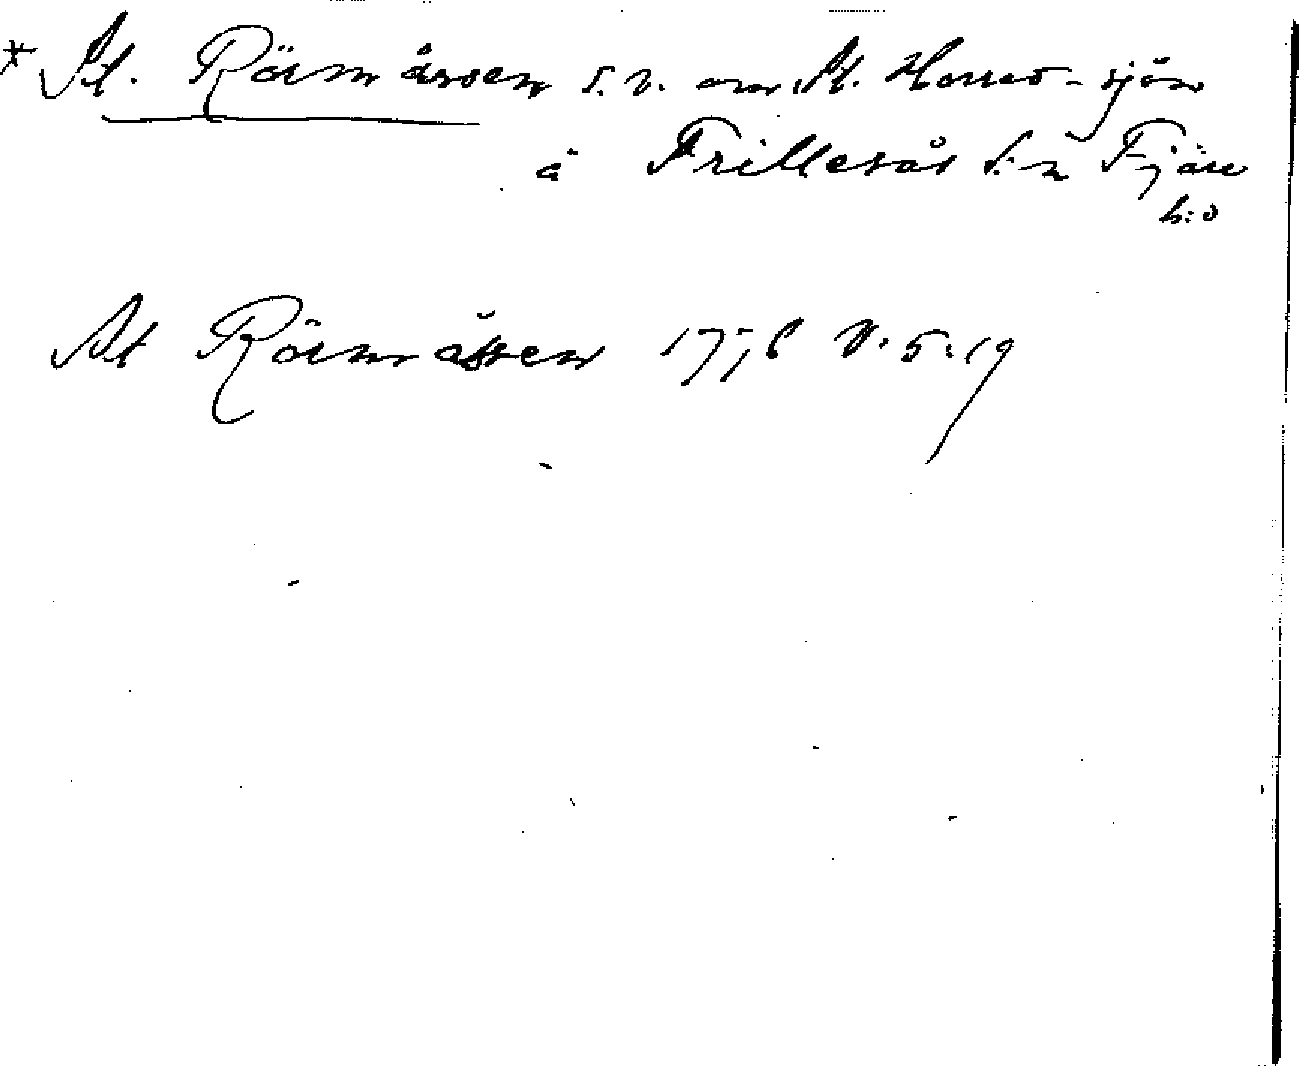 * St. Römmåssen s.v. om St. Horred-sjön
å Frillesås s:n Fjäre
h:d
St Römmåssen V. 5:19